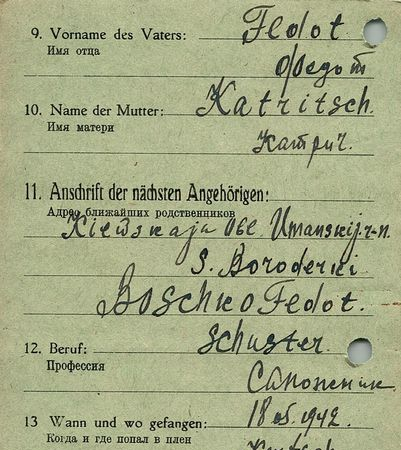 9. Vorname des Vaters: Fedot
Имя отца
Федот
10. Name der Mutter: Katritsch.
Имя матери
Катрич.
11. Anschrift der nächsten Angehörigen:
Адрес ближайших родственников
Kiewskaja Obl. Umanskij r-n.
S. Boroderki
Boschko Fedot.
12. Beruf: Schuster
Профессия
Сапожник
13 Wann und wo gefangen: 18.05.1942.
Когда и где попал в плен